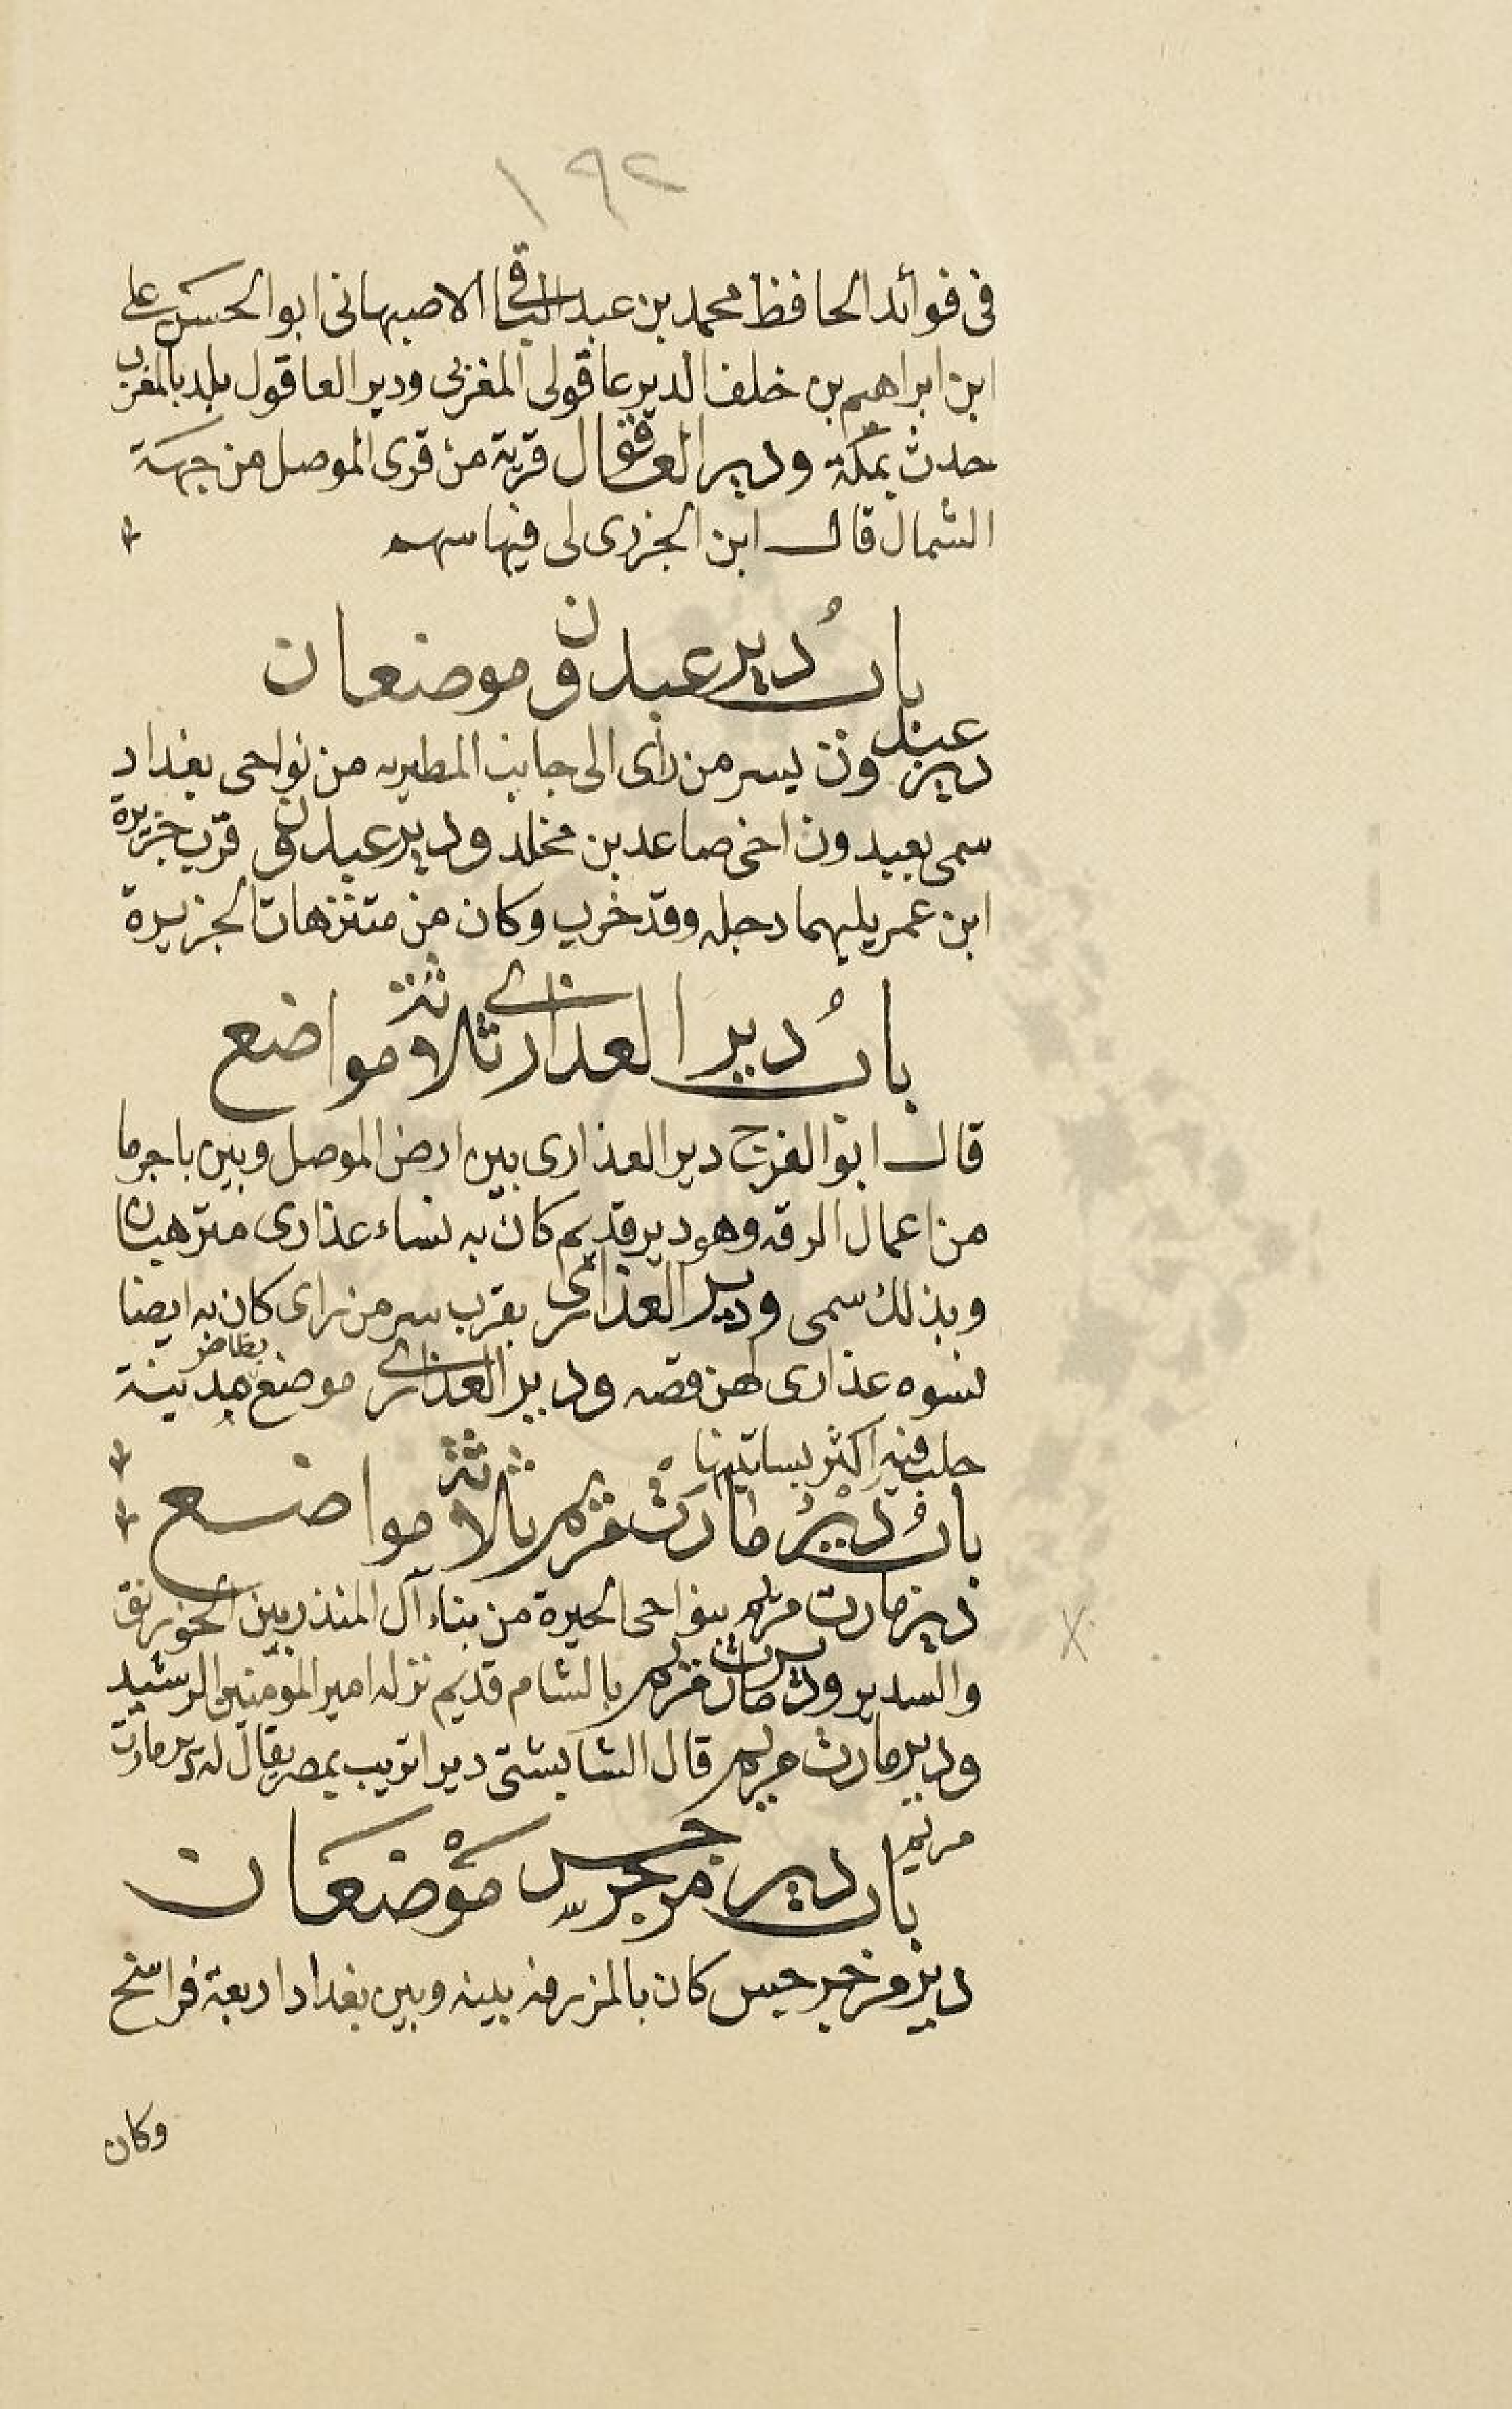 ١٩٢
فى فوائد الحافظ محمد بن عبد الباقى الاصبهانى ابو الحسن على
ابن ابراهيم بن خلف الدير عاقولى المغربى ودير العاقول بلد بالمغرب
حدث بمكة ودير العاقول قرية من قرى الموصل من جهة
الشمال قال ابن الجزرى لى فيها سهم
باب دير عبدون موضعان
دير عبدون بسر من رأى الى جانب المطيره من نواحى بغداد
سمى بعبدون اخى صاعد بن مخلد ودير عبدون قرب جزيرة
ابن عمر يليهما دجله وقد خرب وكان من متنزهات الجزيرة
باب دير العذارى ثلاثة مواضع
قال ابو الفرج دير العذارى بين ارض الموصل وبين باجرما
من اعمال الرقه وهو دير قديم كان به نساء عذارى مترهبات
وبذلك سمى ودير العذارى بقرب سر من راى كان به ايضا
نسوه عذارى لهن قصه ودير العذارى موضع بظاهر مدينة
حلب فيه اكثر بساتينها
باب دير مارت مريم ثلاثة مواضع
دير مارت مريم بنواحى الحيرة من بناء آل المنذر بين الخورنق
والسدير ودير مارت مريم بالشام قديم نزله امير المؤمنين الرشيد
ودير مارت مريم قال الشابشتى دير اتريب بمصر يقال له دير مارت
مريم
باب دير مرجرجس موضعان
دير مرجرجيس كان بالمزرفه بينه وبين بغداد اربعة فراسخ
وكان